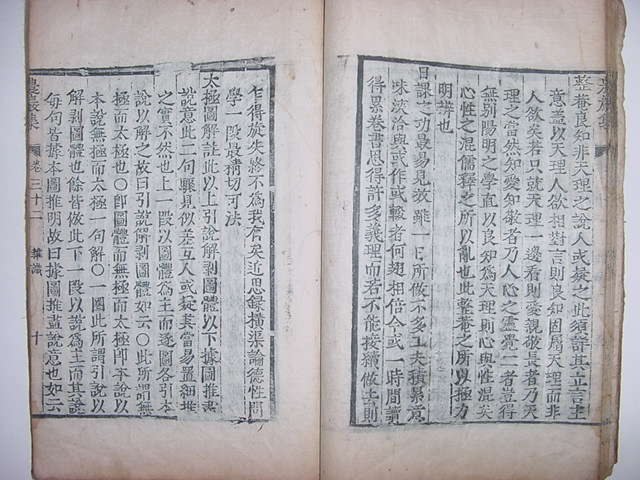 農巖集
整菴良知非天理之說人或疑之此須詳其立言主
意盖以天理人欲相對言則良知固屬天理而非
人欲矣若只就天理一邊看則愛親敬長者乃天
理之當然知愛知敬者乃人心之靈覺二者豈得
無別陽明之學直以良知爲天理則心與性混矣
心性之混儒釋之所以亂也此整菴之所以極力
明辨也
日課之功最易見效雖一日所做不多工夫積累意
味浹洽與或作或輟者何翅相倍今或一時間讀
得累卷書思得許多義理而若不能接續做去則
乍得旋失終不爲我有矣近思錄橫渠論德性問
學一段最精切可法
太極圖解註此以上引說解剝圖體以下據圖推盡
說意此二句驟見似差互人或疑其當易置細推
之實不然也上一段以圖體爲主而逐圖各引本
說以解之故曰引說解剝圖體如云〇此所謂無
極而太極也〇卽圖體而無極而太極卽本說以
本說無極而太極一句解〇一圈此所謂引說以
解剝圖體也餘皆倣此下一段以說爲主而其說
每句皆據本圖推明故曰據圖推盡說意也如云
農巖集 卷三十二 雜識 十